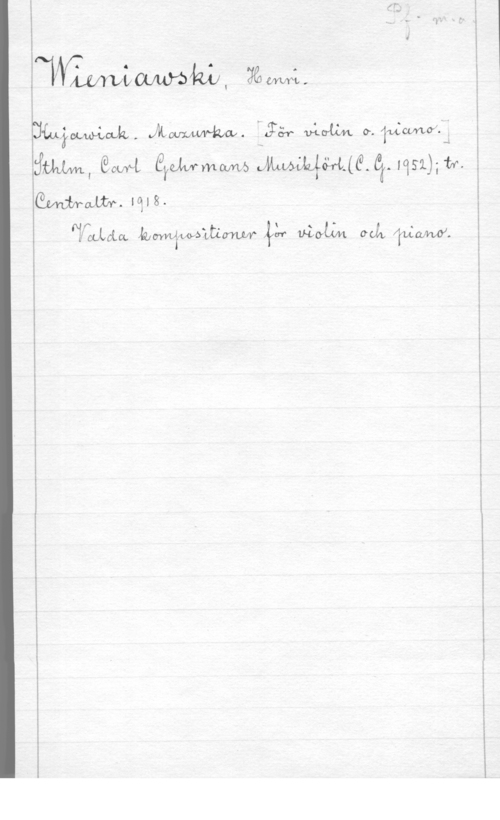 Pf. m. o.
Wieniawski, Henri.
Kujawiak. Mazurka. [För violin o. piano.]
Sthlm, Carl Gehrmans Musikförl. (C. G. 1952); tr.
Centraltr. 1918.
Valda kompositioner för violin och piano.